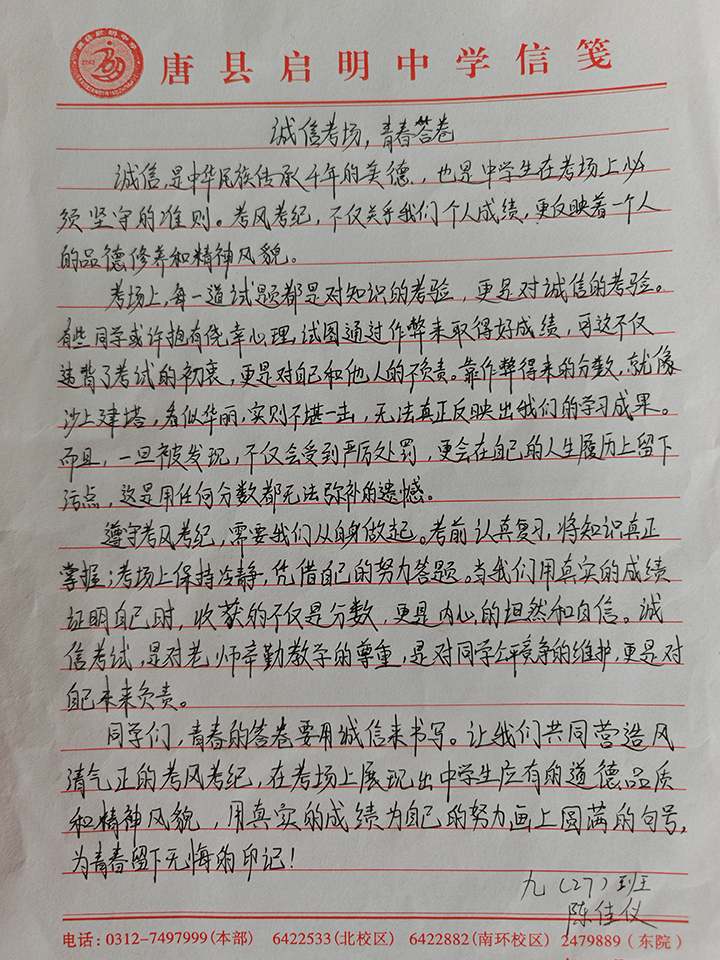 唐县启明中学信笺
诚信考场，青春答卷
诚信，是中华民族传承千年的美德，也是中学生在考场上必
须坚守的准则。考风考纪，不仅关乎我们个人成绩，更反映着一个人
的品德修养和精神风貌。
考场上，每一道试题都是对知识的考验，更是对诚信的考验。
有些同学或许抱有侥幸心理，试图通过作弊来取得好成绩，可这不仅
违背了考试的初衷，更是对自己和他人的不负责。靠作弊得来的分数，就像
沙上建塔，看似华丽，实则不堪一击，无法真正反映出我们的学习成果。
而且，一旦被发现，不仅会受到严厉处罚，更会在自己的人生履历上留下
污点，这是用任何分数都无法弥补的遗憾。
遵守考风考纪，需要我们从自身做起。考前认真复习，将知识真正
掌握；考场上保持冷静，凭借自己的努力答题。当我们用真实的成绩
证明自己时，收获的不仅是分数，更是内心的坦然和自信。诚
信考试，是对老师辛勤教学的尊重，是对同学公平竞争的维护，更是对
自己未来负责。
同学们，青春的答卷要用诚信来书写。让我们共同营造风
清气正的考风考纪，在考场上展现出中学生应有的道德品质
和精神风貌，用真实的成绩为自己的努力画上圆满的句号，
为青春留下无悔的印记！
九（27）班
陈佳仪
电话：0312-7497999(本部) 6422533(北校区) 6422882(南环校区) 2479889（东院）